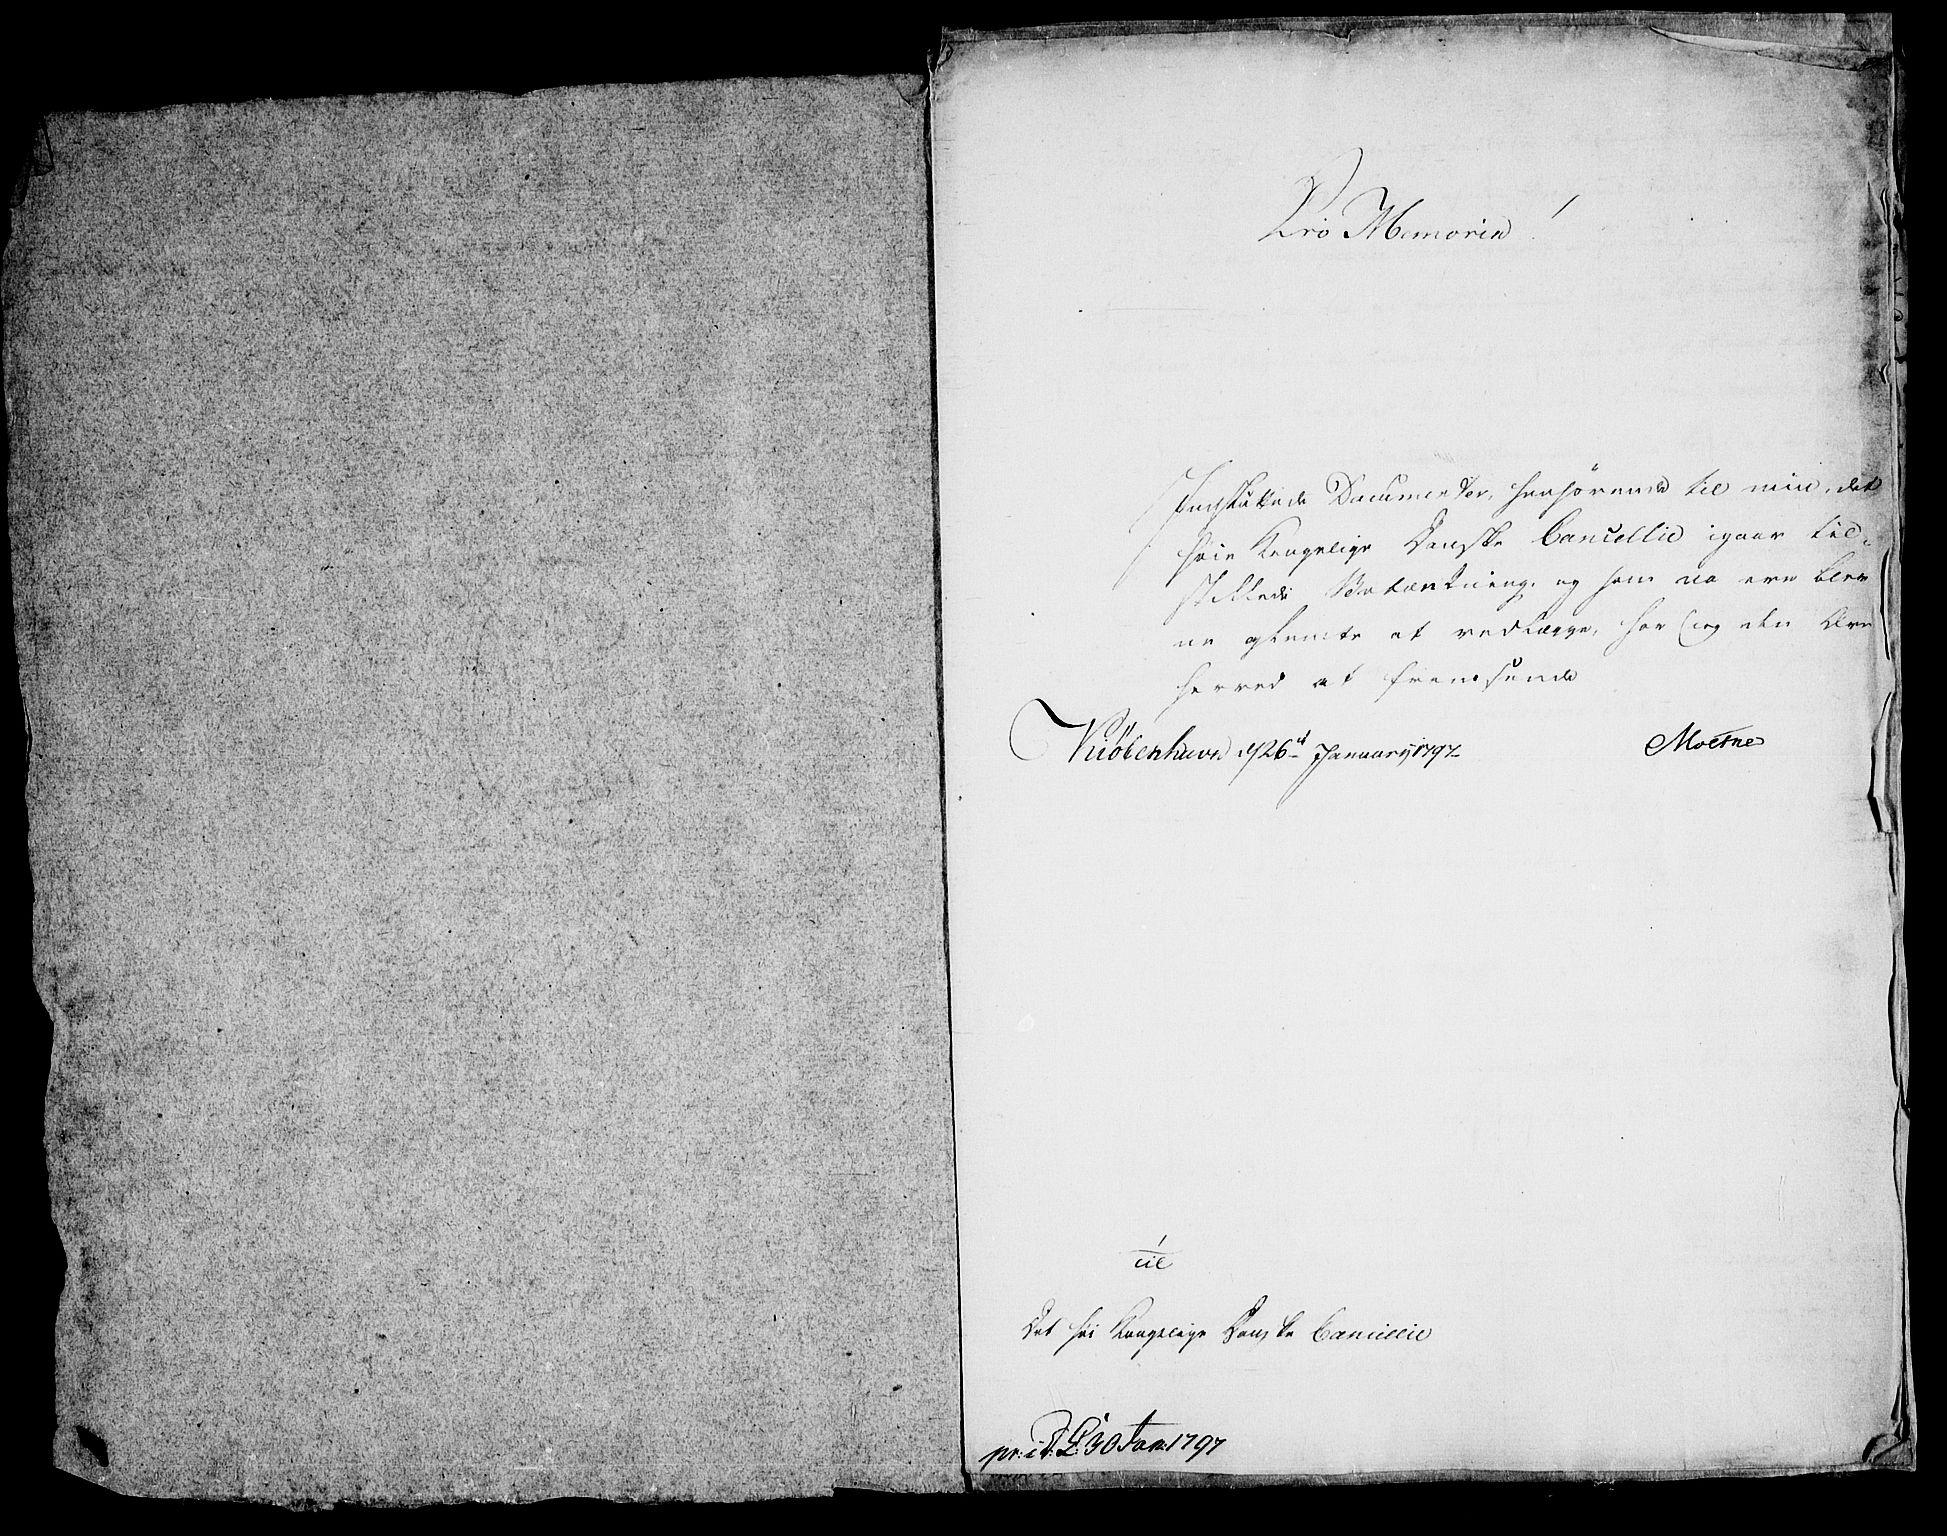 Pro Memoria!
Indstukkede Documenter, henhørende til min, det
høie Kongelige Danske Cancellie igaar til-
stillede Betænkning, og som da ere blev
ne glemte at vedlægge, har jeg den Ære
herved at fremsende
Kiöbenhavn d 26d January 1797
til
Det høi Kongelige Danske Cancellie
30 Jan: 1797